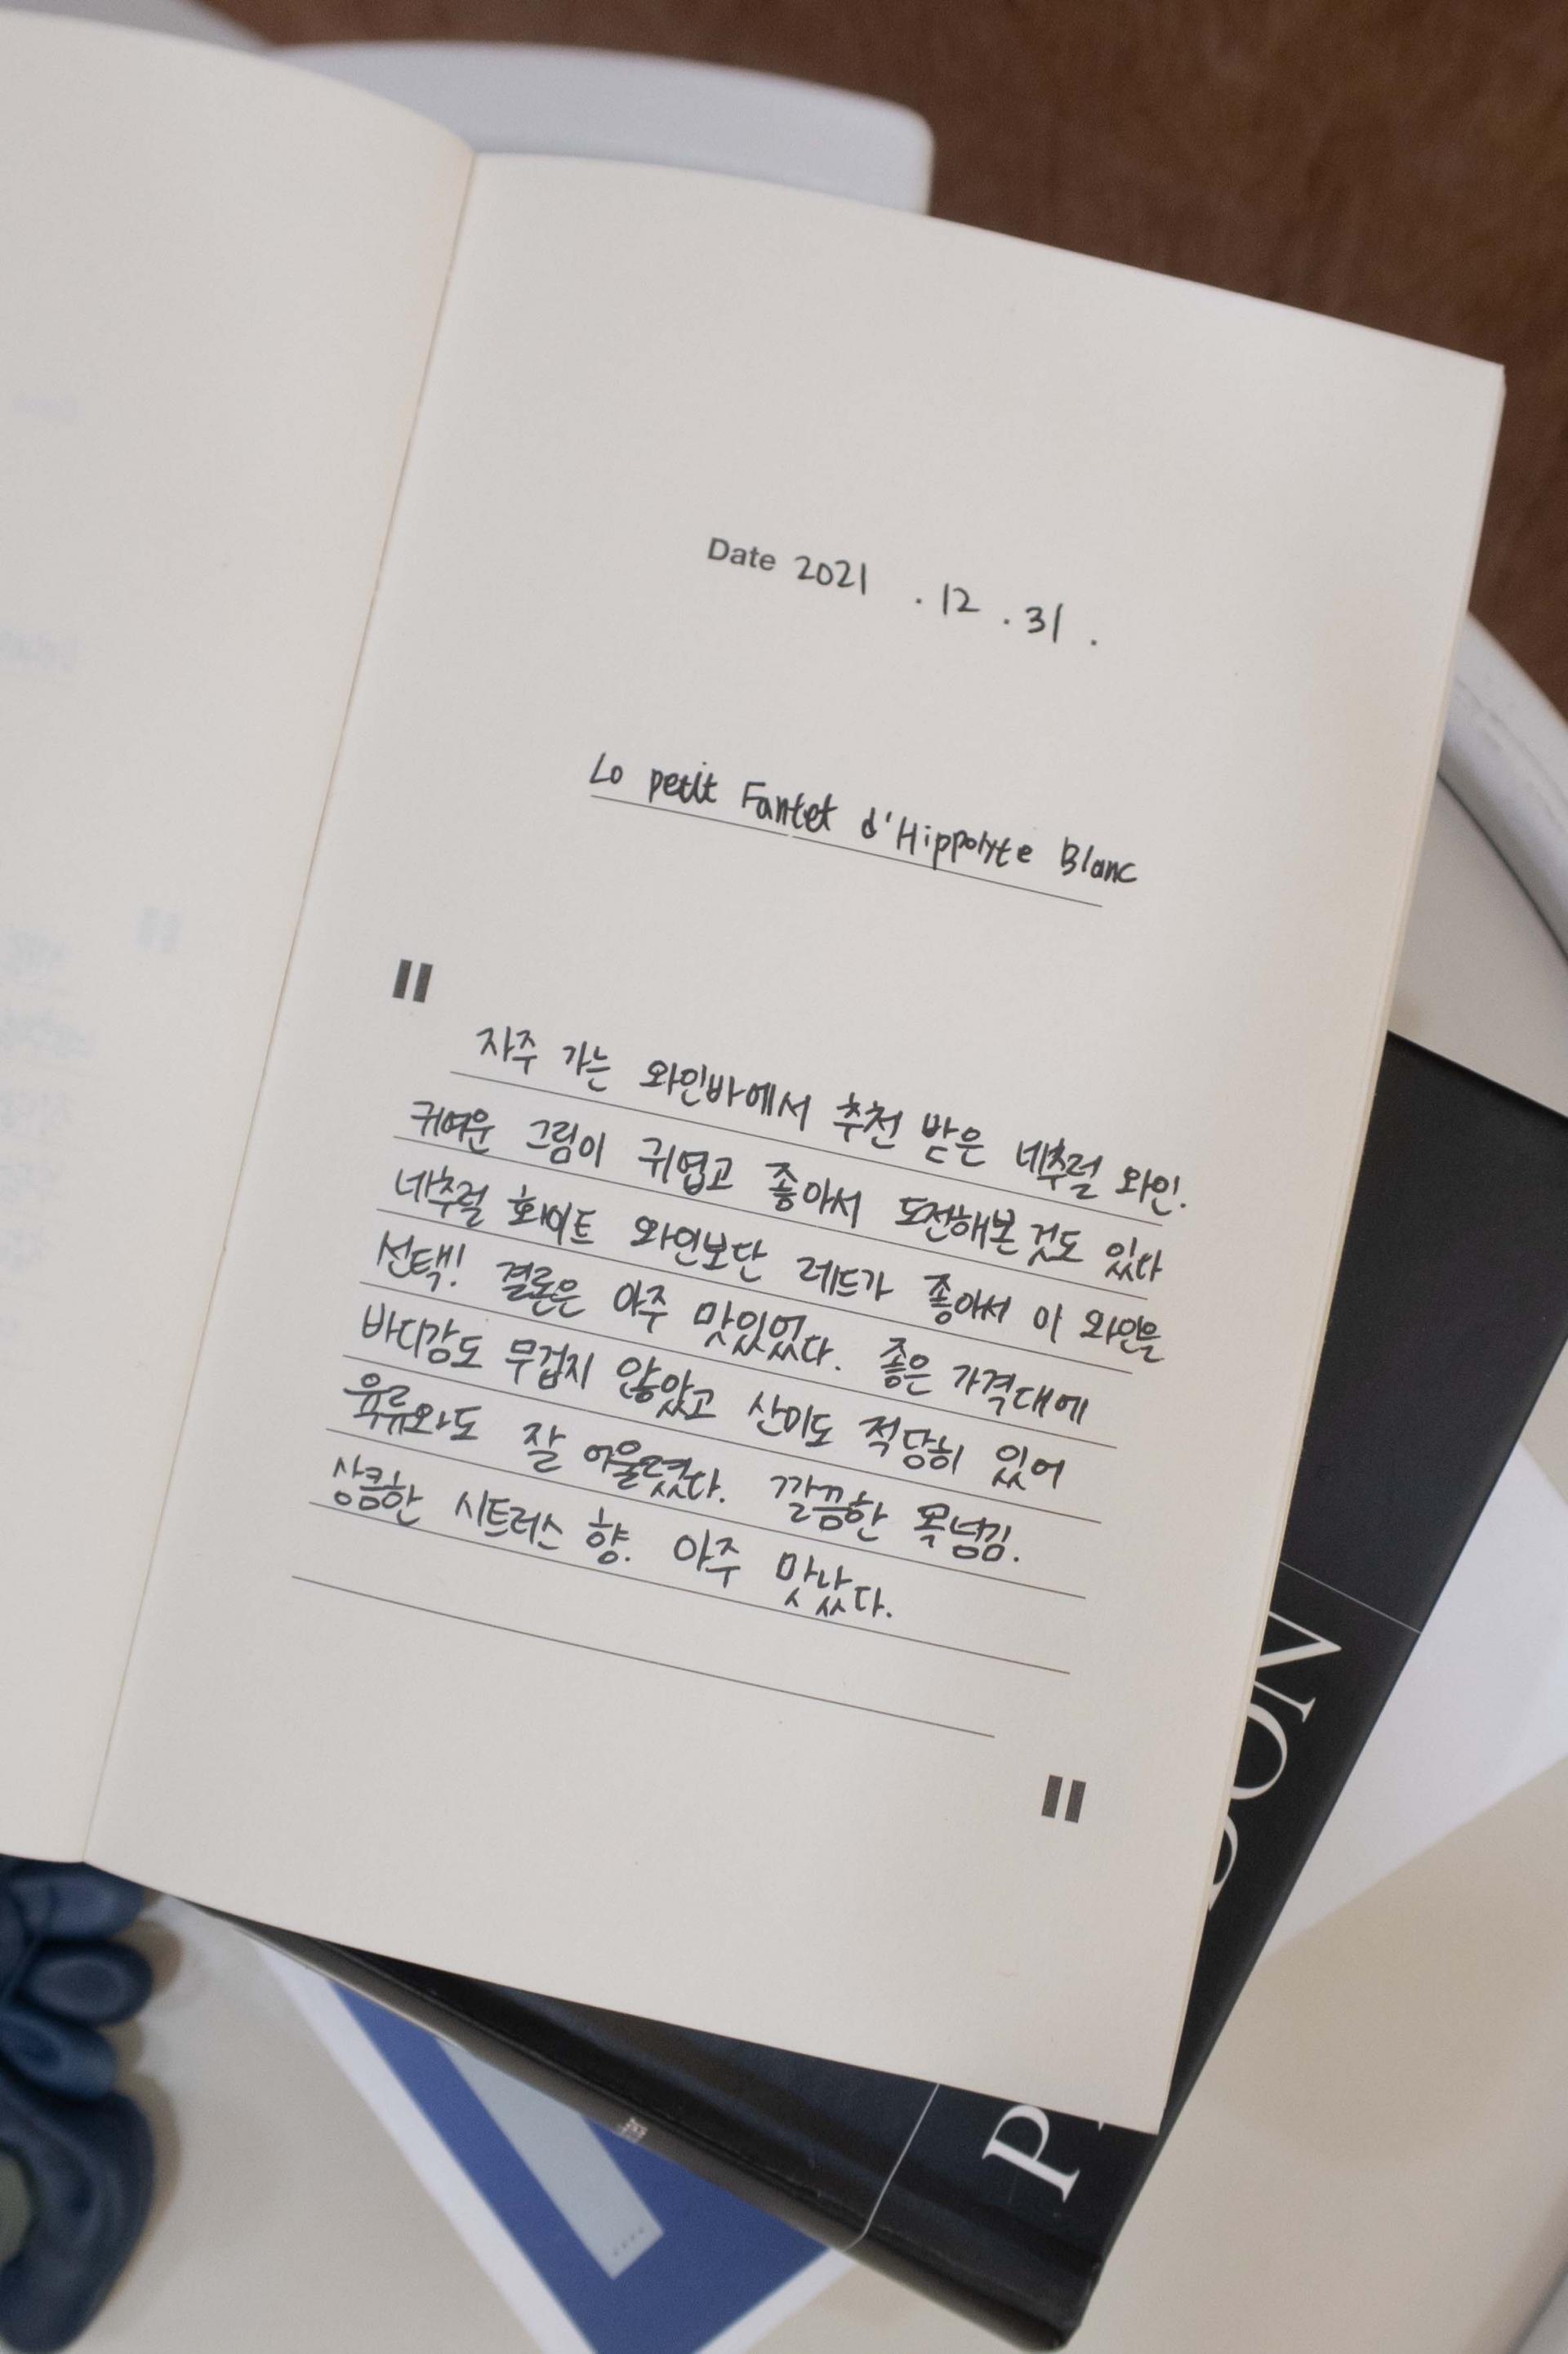 Date 2021 . 12 . 31 .
Lo petit Fantet d'Hippolyte Blanc
"
자주 가는 와인바에서 추천 받은 네추럴 와인.
귀여운 그림이 귀엽고 좋아서 도전해본 것도 있다
네추럴 화이트 와인보단 레드가 좋아서 이 와인을
선택! 결론은 아주 맛있었다. 좋은 가격대에
바디감도 무겁지 않았고 산미도 적당히 있어
육류와도 잘 어울렸다. 깔끔한 목넘김.
상큼한 시트러스 향. 아주 맛났다.
"
SON
P